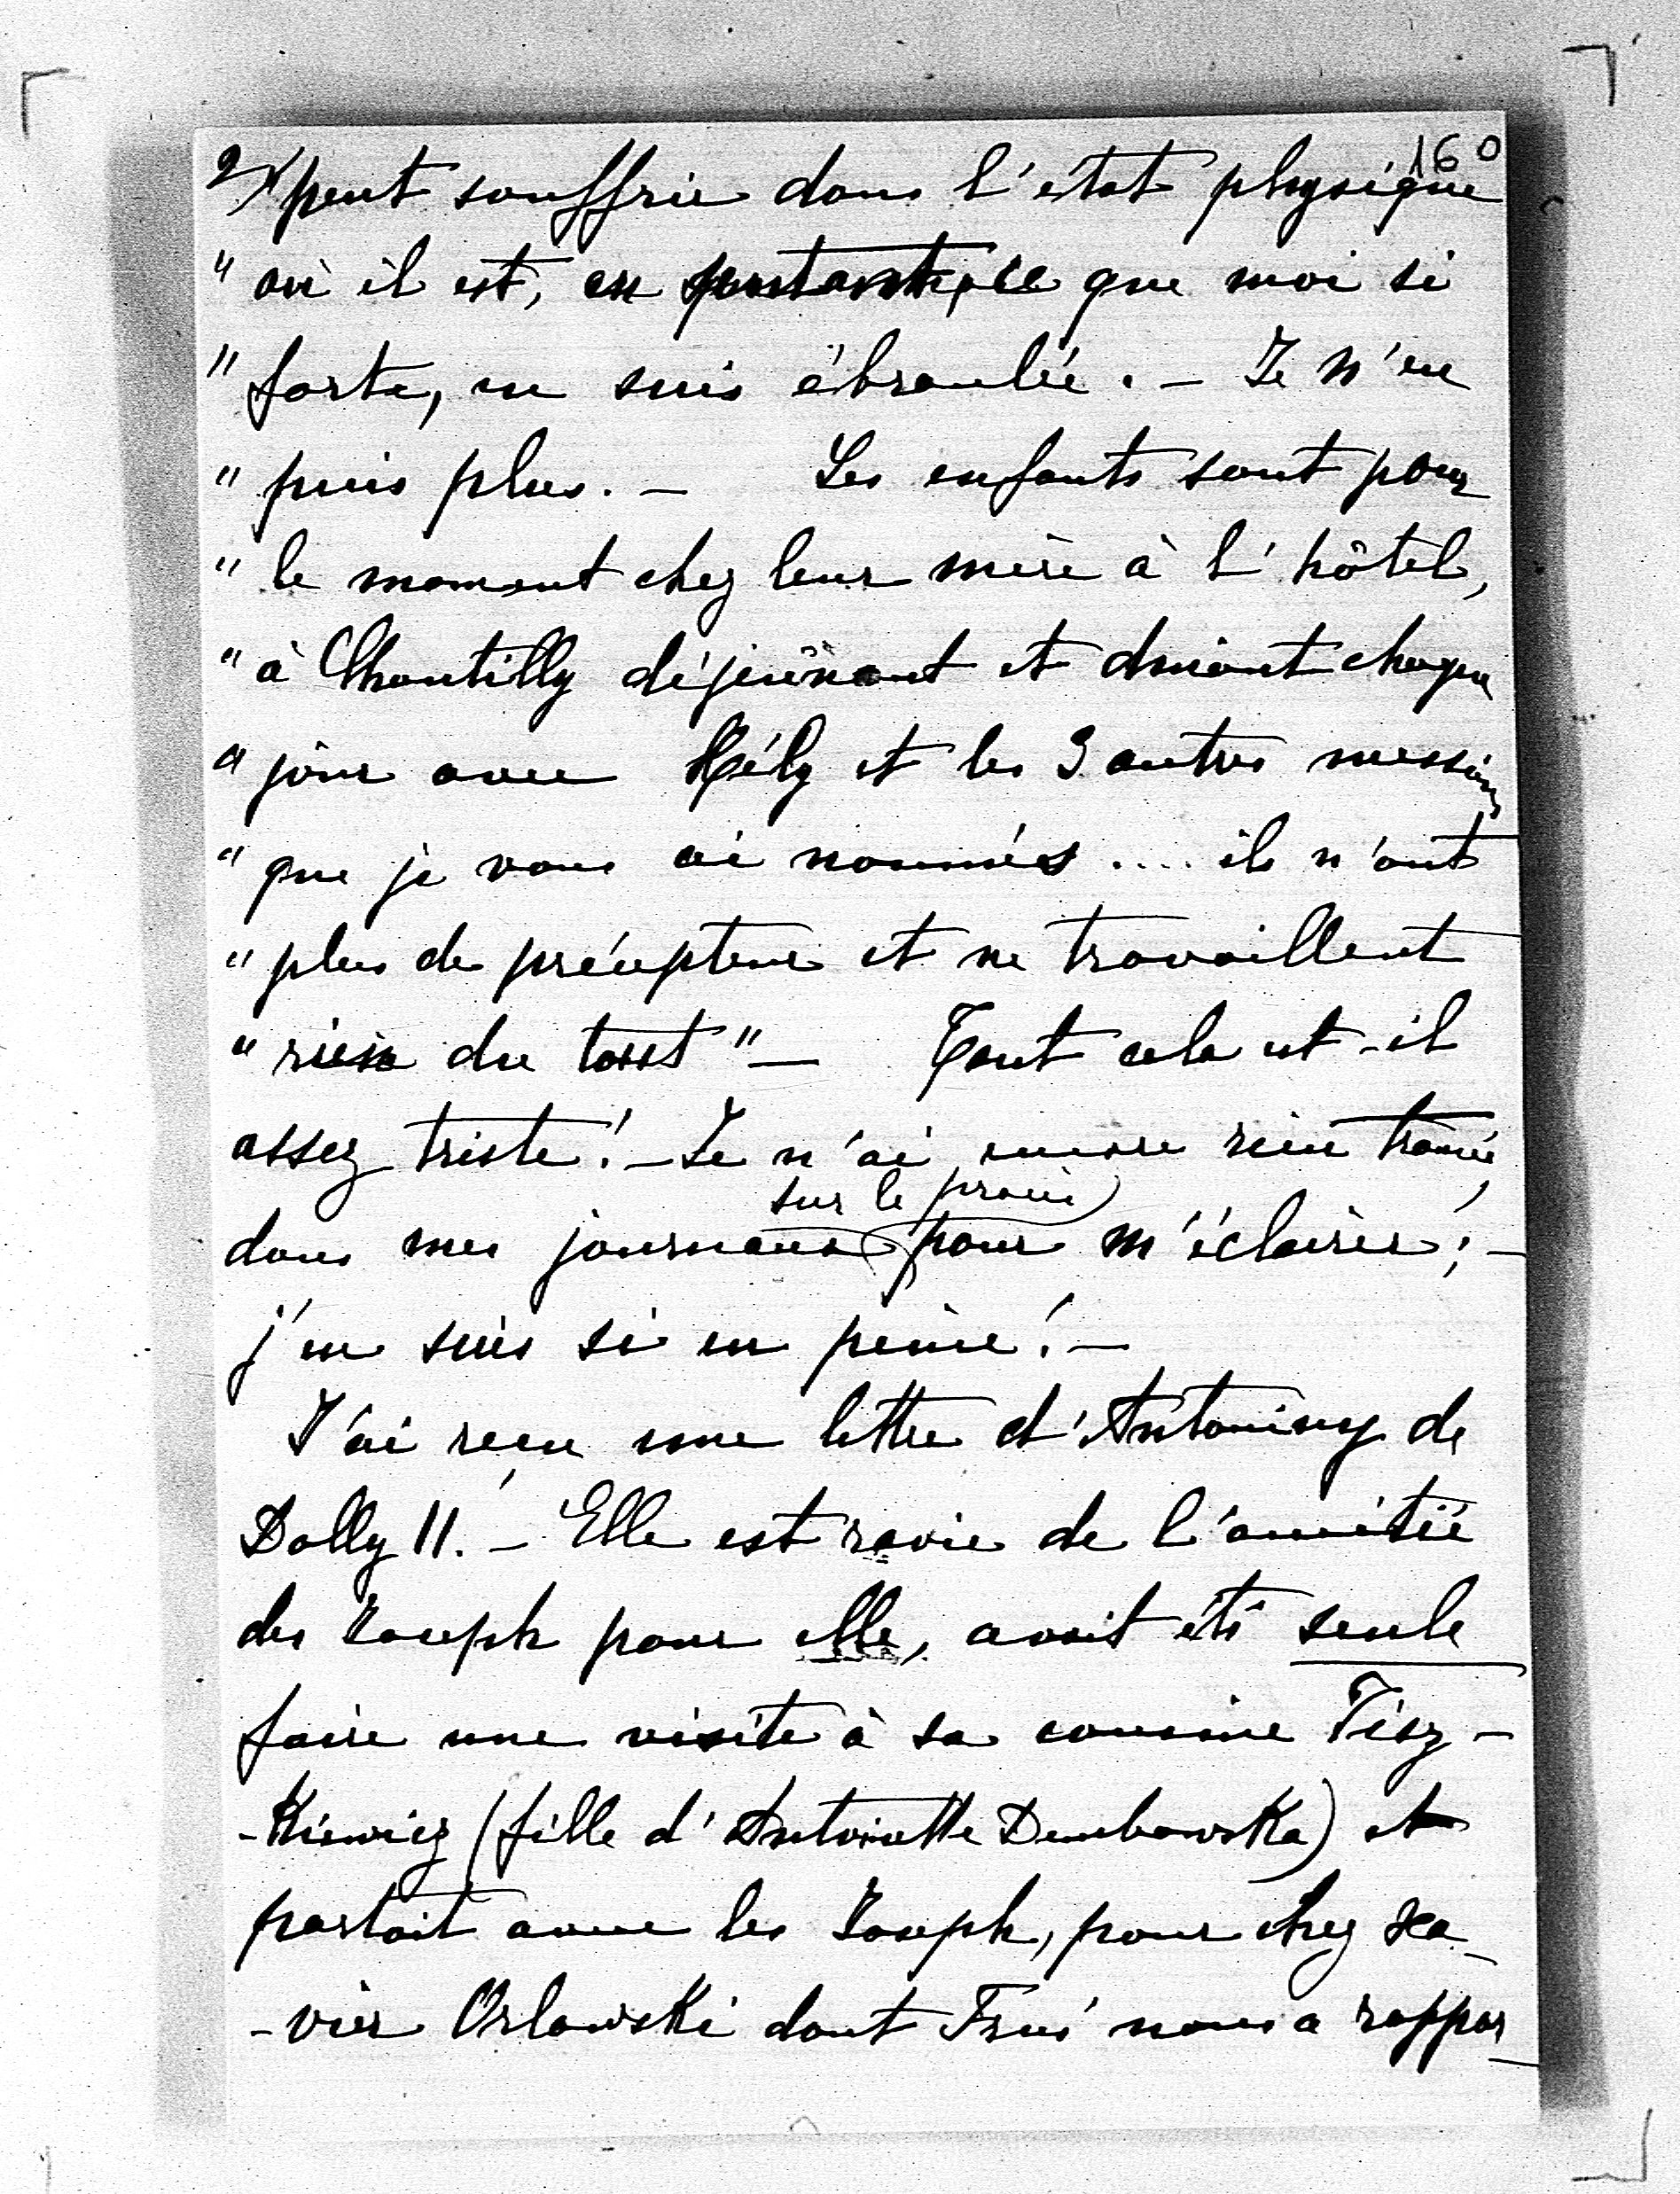 160
2/ peut souffrir dans l'état physique
" où il est, en sentant, ce que moi si
" forte, en suis ébranlée. – Je n'en
" puis plus. – Les enfants sont pour
" le moment chez leur mère à l'hôtel,
" à Chantilly déjeûnant et dinant chaque
" jour avec Hély et les 3 autres messieurs
" que je vous ai nommés .... ils n'ont
" plus de précepteur et ne travaillent
" rien du tout" – Tout cela est-il
assez triste! – Je n'ai encore rien trouvé,
sur le procès
dans mes journaux pour m'éclairer; –
j'en suis si en peine! –
J'ai reçu une lettre d'Antoniny de
Dolly 11. – Elle est ravie de l'amitié
des Joseph pour elle, avait été seule
faire une visite à sa cousine Tisz-
-Kiewicz (fille d'Antoinette DembowsKa) et
partait avec les Joseph, pour chez Xa-
-vier OrlowsKi dont nous a rappor-